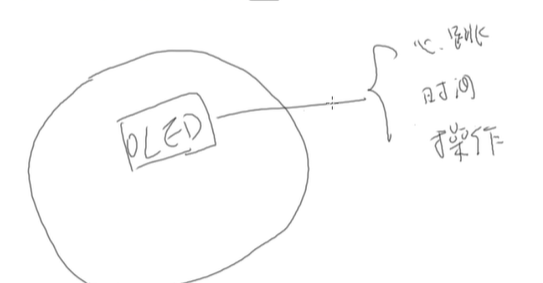 OLED
心跳
时间
操作